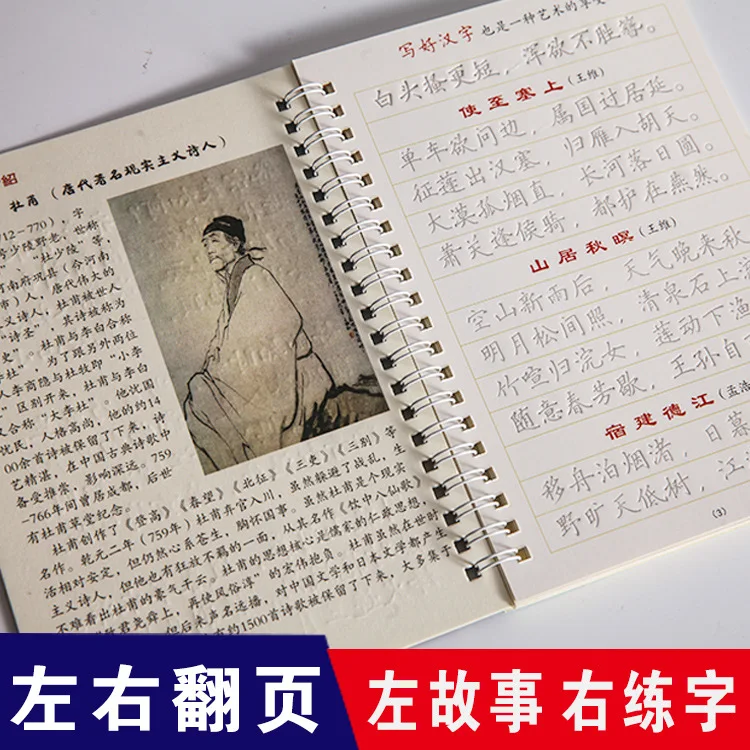 绍
杜甫（唐代著名现实主义诗人）
12-770），字
号少陵野老，世称
，“杜少陵”等，
河南府巩县（今河南
市）人，唐代伟大的
义诗人，杜甫被世人
“诗圣”，其诗被称为
史”。杜甫与李白合称
李杜”，为了跟另外两位
人李商隐与杜牧即“小李
”区别开来，杜甫与李白
又合称“大李杜”。他忧国
忧民，人格高尚，他的约14
00余首诗被保留了下来，诗
艺精湛，在中国古典诗歌中
备受推崇，影响深远。759
-766年间曾居成都，后世
有杜甫草堂纪念。
杜甫创作了《登高》《春望》《北征》《三吏》《三别》等
名作。乾元二年（759年）杜甫弃官入川，虽然躲避了战乱，生
活相对安定，但仍然心系苍生，胸怀国事。虽然杜甫是个现实
主义诗人，但他也有狂放不羁的一面，从其名作《饮中八仙歌》
不难看出杜甫的豪气干云。杜甫的思想核心是儒家的仁政思想，
致君尧舜上，再使风俗淳”的宏伟抱负。杜甫虽然在世时
但后来声名远播，对中国文学和日本文学都产生
有约1500首诗歌被保留了下来，大多集于
写好汉字 也是一种艺术的享受
白头搔更短，浑欲不胜簪。
使至塞上（王维）
单车欲问边，属国过居延。
征蓬出汉塞，归雁入胡天。
大漠孤烟直，长河落日圆。
萧关逢候骑，都护在燕然。
山居秋暝（王维）
空山新雨后，天气晚来秋
明月松间照，清泉石上流
竹喧归浣女，莲动下渔
随意春芳歇，王孙自
宿建德江（孟浩
移舟泊烟渚，日暮
野旷天低树，江
（3）
左右翻页
左故事 右练字